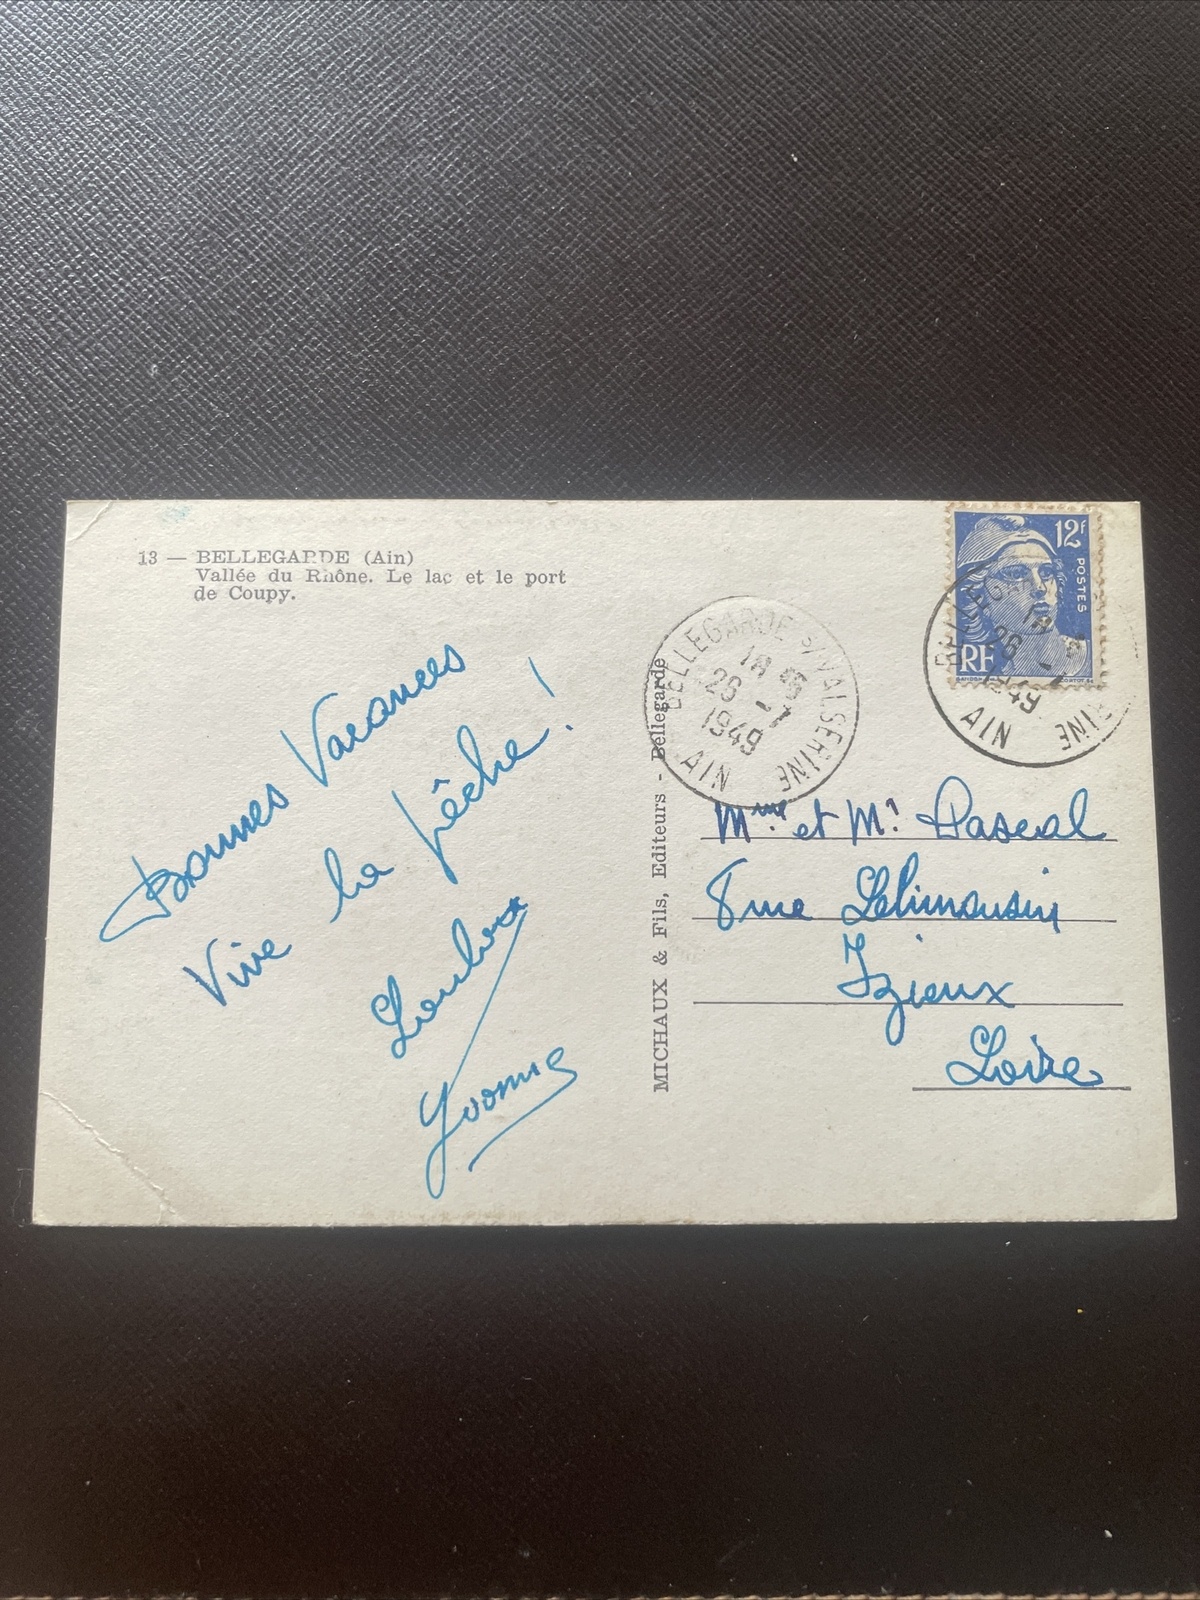 13 — BELLEGARDE (Ain)
Vallée du Rhône. Le lac et le port
de Coupy.
Bonnes Vacances
Vive la pêche !
Yvonne
MICHAUX & Fils, Editeurs - Bellegarde
BELLEGARDE S/VALSERINE
18 45
26 - 7
1949
AIN
12f
POSTES
RF
18
26 - 7
1949
AIN
Mme et Mr Pascal
8 rue Lelimousin
Izieux
Loire